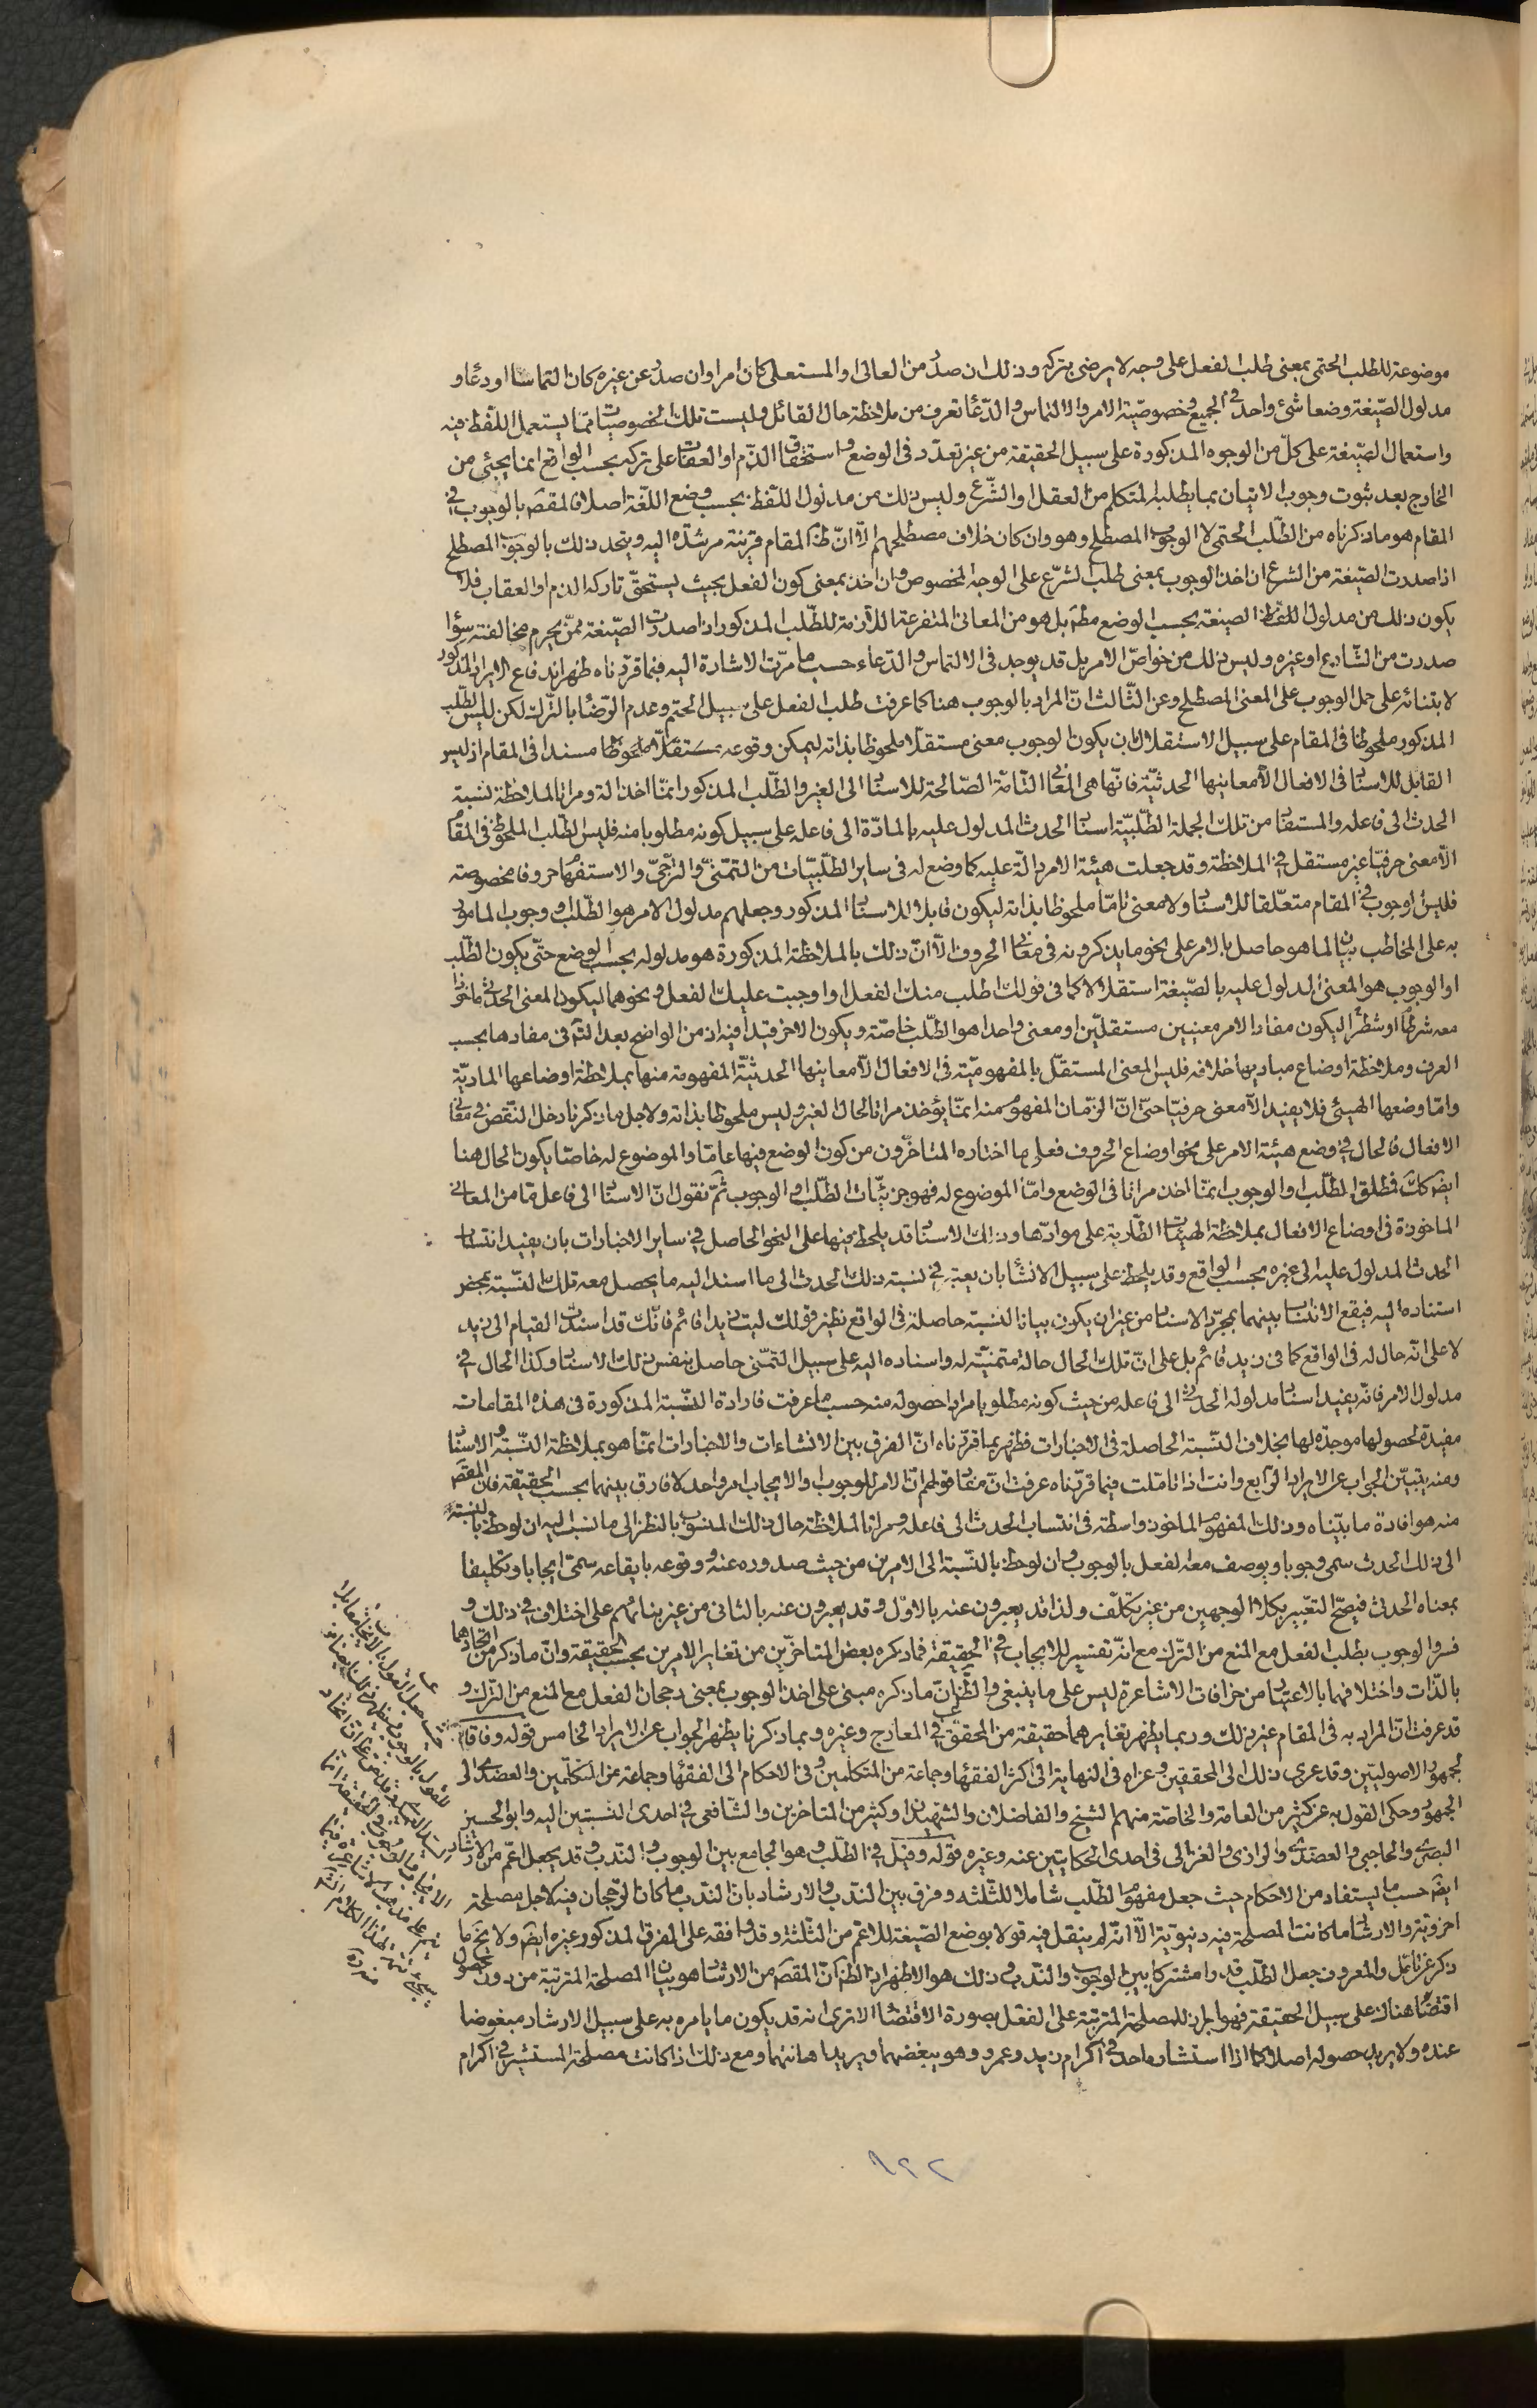 موضوعة للطلب الحتمى بمعنى طلب الفعل على وجه لا يرضى بتركه وذلك ان صدر من العالى او المستعلى كان امرا وان صدر عن غيره كان التماسا او دعاء و
مدلول الصّيغة وضعا شئ واحد فى الجميع وخصوصيّة الامر والالتماس والدّعاء تعرف من ملاحظة حال القائل وليست تلك الخصوصيات ممّا يستعمل اللّفظ فيه
واستعمال الصّيغة على كلّ من الوجوه المذكورة على سبيل الحقيقة من غير تعدّد فى الوضع واستحقاق الذّم او العقاب على تركه بحسب الواقع انما يجئ من
الخارج بعد ثبوت وجوب الاتيان بما يطلبه المتكلم من العقل او الشّرع وليس ذلك من مدلول اللّفظ بحسب وضع اللّغة اصلا فالمقصَ بالوجوب فى
المقام هو ما ذكرناه من الطّلب الحتمى لا الوجوب المصطلح وهو وان كان خلاف مصطلحهم الّا انّ ظَ المقام قرينة مرشدة اليه ويتحد ذلك بالوجوب المصطلح
اذا صدرت الصّيغة من الشرع ان اخذ الوجوب بمعنى طلب الشّرع على الوجه المخصوص وان اخذ بمعنى كون الفعل بحيث يستحقّ تاركه الذم او العقاب فلا
يكون ذلك من مدلول اللفظ الصيغة بحسب الوضع مطَم بل هو من المعانى المتفرعة اللّازمة للطّلب المذكور اذا صدرت الصّيغة ممّن يحرم مخالفته سواء
صدرت من الشّارع او غيره وليس ذلك من خواصّ الامر بل قد يوجد فى الالتماس والدّعاء حسب ما مرّت الاشارة اليه فبما قرّرناه ظهر اندفاع الايراد المذكور
لابتنائه على حمل الوجوب على المعنى المصطلح وعن الثّالث انّ المراد بالوجوب هنا كما عرفت طلب الفعل على سبيل الحتم وعدم الرّضا بالتّرك لكن ليس الطّلب
المذكور ملحوظا فى المقام على سبيل الاستقلال بان يكون الوجوب معنى مستقلّا ملحوظا بذاته ليمكن وقوعه مستقلّا ملحوظا مسندا فى المقام اذ ليس
القابل للاسناد فى الافعال الّا معاينها الحدثيّة فانّها هى المعانى التّامّة الصّالحة للاسناد الى الغير والطّلب المذكور انمّا اخذ الة ومراتا لملاحظة نسبة
الحدث الى فاعله والمستفاد من تلك الجملة الطّلبيّة اسناد الحدث المدلول عليه بالمادّة الى فاعله على سبيل كونه مطلوبا منه فليس الطّلب الملحوظ فى المقام
الّا معنى حرفيّا غير مستقل فى الملاحظة وقد جعلت هيئة الامر دالّة عليه كما وضع له فى ساير الطلبيّات من التمنّى والترجّى والاستفهام حروفا مخصوصة
فليس الوجوب فى المقام متعلّقا للاسناد ولا معنى تامّا ملحوظا بذاته ليكون قابلا للاسناد المذكور وجعلهم مدلول الامر هو الطّلب او وجوب المامور
به على المخاطب بيان لما هو حاصل بالامر على نحو ما يذكرونه فى معانى الحروف الّا انّ ذلك بالملاحظة المذكورة هو مدلوله بحسب الوضع حتّى يكون الطّلب
او الوجوب هو المعنى المدلول عليه بالصّيغة استقلالا كما فى قولك اطلب منك الفعل او اوجبت عليك الفعل ونحوهما ليكون المعنى الحدثى ماخوذا
معه شرطا او شطرا ليكون مفاد الامر معنيين مستقلّين او معنى واحدا هو الطّلب خاصّة ويكون الاخر قيدا فيه اذ من الواضح بعد التَم فى مفادها بحسب
العرف وملاحظة اوضاع مباديها خلافه فليس المعنى المستقلّ بالمفهوميّة فى الافعال الّا معاينها الحدثيّة المفهومة منها بملاحظة اوضاعها الماديّة
وامّا وضعها الهيئى فلا يفيد الّا معنى حرفيّا حتّى انّ الزّمان المفهوم منه انمّا يؤخذ مراتا لحال الغير وليس ملحوظا بذاته ولاجل ما ذكرنا دخل النّقص فى معانى
الافعال فالحال فى وضع هيئة الامر على نحو اوضاع الحروف فعلى ما اختاره المتاخّرون من كون الوضع فيها عامّا والموضوع له خاصّا يكون الحال هنا
ايضَ كك فمطلق الطّلب والوجوب انمّا اخذ مراتا فى الوضع وامّا الموضوع له فهو جزئيّات الطّلب والوجوب ثمّ نقول انّ الاسناد الى فاعل مّا من المعانى
الماخوذة فى اوضاع الافعال بملاحظة الهيئات الطّارية على موادّها وذلك الاسناد قد يلحظ فيها على النحو الحاصل فى ساير الاخبارات بان يفيد انتساب
الحدث المدلول عليه الى غيره بحسب الواقع وقد يلحظ على سبيل الانشاء بان يعتبر فى نسبة ذلك الحدث الى ما اسند اليه ما يحصل معه تلك النّسبة بمحض
استناده اليه فيقع الانتساب بينهما بمجرّد الاسناد من غير ان يكون بيانا لنسبة حاصلة فى الواقع نظير قولك ليت زيدا قائم فانّك قد اسندت القيام الى زيد
لا على انّه حال له فى الواقع كما فى زيد قائم بل على انّ تلك الحال حالة متمنيّة له واسناده اليه على سبيل التمنّى حاصل بنفس ذلك الاسناد وكذا الحال فى
مدلول الامر فانّه يفيد اسناد مدلوله الحدثى الى فاعله من حيث كونه مطلوبا مرادا حصوله منه حسب ما عرفت فارادة النّسبة المذكورة فى هذه المقامات
مفيدة لحصولها موجدة لها بخلاف النّسبة الحاصلة فى الاخبارات فظهر بما قرّرناه انّ الفرق بين الانشاءات والاخبارات انمّا هو بملاحظة النّسبة والاسناد
ومنه يتبيّن الجواب عن الايراد الرّابع وانت اذا تاملت فيما قرّرناه عرفت انّ مفاد قولهم انّ الامر للوجوب او الايجاب امر واحد لا فارق بينهما بحسب الحقيقة فان المقصَ
منه هو افادة ما بيّناه وذلك المفهوم الماخوذ واسطة فى انتساب الحدث الى فاعله ومراتا لملاحظة حال ذلك المنسوب بالنظر الى ما نسب اليه ان لوحظ بالنسبة
الى ذلك الحدث سمى وجوبا ويوصف معه الفعل بالوجوب وان لوحظ بالنّسبة الى الامرين من حيث صدوره عنه ووقوعه بايقاعه سمّى ايجابا وتكليفا
بمعناه الحدثى فيصحّ التعبير بكلا الوجهين من غير تكلّف ولذا تد يعبرون عنه بالاوّل وقد يعبرون عنه بالثانى من غير بنائهم على اختلاف فى ذلك و
فسّروا الوجوب بطلب الفعل مع المنع من التّرك مع انّه تفسير للايجاب فى الحقيقة فما ذكره بعض المتاخّرين من تغاير الامرين بحسب الحقيقة وانّ ما ذكر من اتحادهما
بالذّات واختلافهما بالاعتبار من خرافات الاشاعرة ليس على ما ينبغى والظَ انّ ما ذكره مبنى على اخذ الوجوب بمعنى رجحان الفعل مع المنع من التّرك و
قد عرفت انّ المراد به فى المقام غير ذلك وربما يظهر تغايرهما حقيقة من المحقق فى المعارج وغيره وبما ذكرنا يظهر الجواب عن الايراد الخامس قوله وفاقا
لجمهور الاصوليّين وقد عزى ذلك الى المحققين وعزاه فى النهاية الى اكثر الفقهاء وجماعة من المتكلّمين وفى الاحكام الى الفقهاء وجماعة من المتكلّمين والعضدى الى
الجمهور وحكى القول به عن كثير من العامة والخاصّة منهم الشيخ والفاضلان والشّهيدان وكثير من المتاخرين والشّافعى فى احدى النسبتين اليه وابو الحسين
البصرى والحاجبى والعضدى والرازى والغزالى فى احدى الحكايتين عنه وغيره قوله وقيل فى الطّلب وهو الجامع بين الوجوب والندب وقد يجعل اعّم من الارشاد
ايضَ حسب ما يستفاد من الاحكام حيث جعل مفهوم الطّلب شاملا للثّلثه وفرق بين النّدب والارشاد بان النّدب ما كان الرّجحان فيه لاجل مصلحة
اخروية والارشاد ما كانت المصلحة فيه دنيويّة الّا انّه لم ينقل فيه قولا بوضع الصّيغة للاعّم من الثّلثة وقد وافقه على الفرق المذكور غيره ايضَ ولا يخَ ما
ذكر عن تامّل والمعروف جعل الطّلب قدرا مشتركا بين الوجوب والنّدب وذلك هو الاظهر اذ الظَ انّ المقصَ من الارشاد هو بيان المصلحة المترتبة من دون حصول
اقتضاء هناك على سبيل الحقيقة فهو ابراز للمصلحة المترتبة على الفعل بصورة الاقتضاء الا ترى انه قد يكون ما يامره به على سبيل الارشاد مبغوضا
عنده ولا يريد حصوله اصلا كما اذا استشاره احد فى اكرام زيد وعمرو وهو يبغضهما ويريد اهانتهما ومع ذلك اذا كانت مصلحة المستشير فى اكرام
٩٢٢